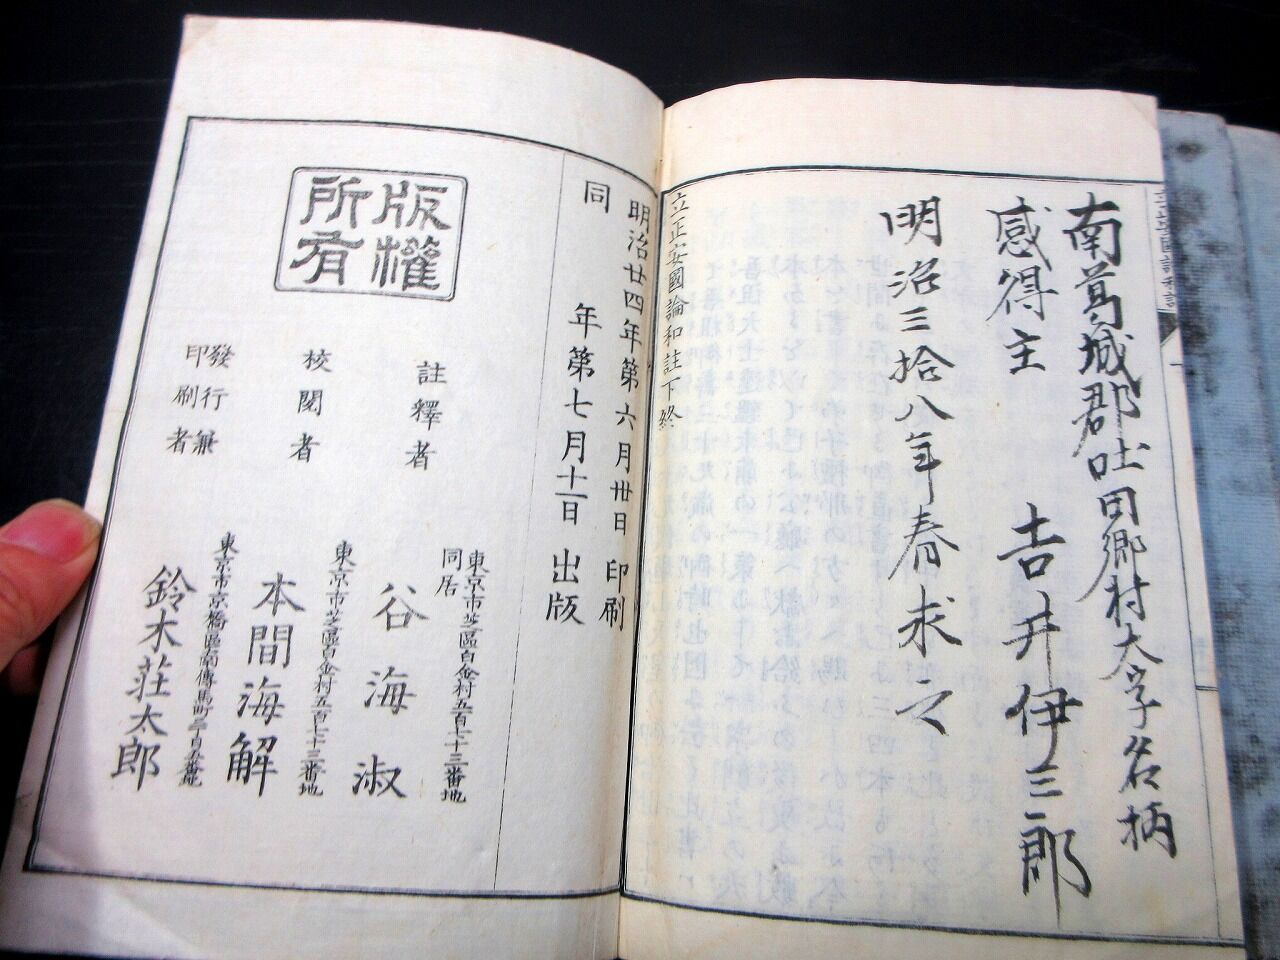 南葛城郡吐田郷村大字名柄
感得主　吉井伊三郎
明治三拾八年春求之
立正安國論和註下終
明治廿四年第六月卅日印刷
同　年第七月十一日出版
版權
所有
註釋者
東京市芝區白金村五百七十三番地
同居
谷海淑
校閲者
東京市芝區白金村五百七十三番地
本間海解
發行兼
印刷者
東京市京橋區南傳馬町二丁目五番地
鈴木荘太郎